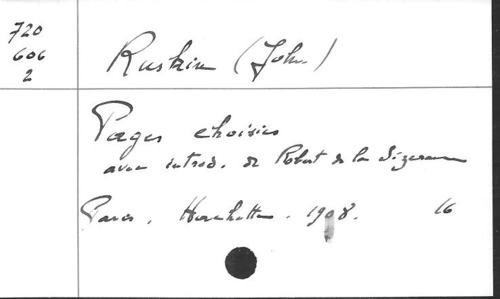 720
606
2
Ruskin (John)
Pages choisies
avec introd. de Robert de la Sizeranne
Paris, Hachette. 1908. 16